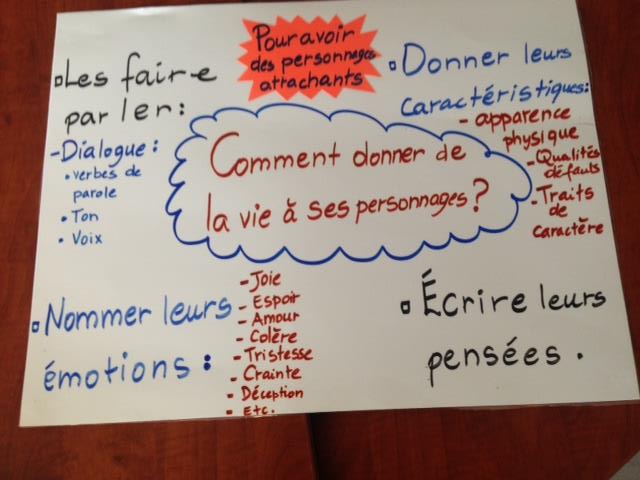 Pour avoir
des personnages
attachants
▫Les faire
parler:
-Dialogue:
• verbes de
parole
• Ton
• Voix
Comment donner de
la vie à ses personnages?
▫Donner leurs
caractéristiques:
- apparence
physique
-Qualités
défauts
-Traits
de
caractère
▫Nommer leurs
émotions:
-Joie
- Espoir
- Amour
- Colère
-Tristesse
- Crainte
- Déception
- Etc.
▫Écrire leurs
pensées.